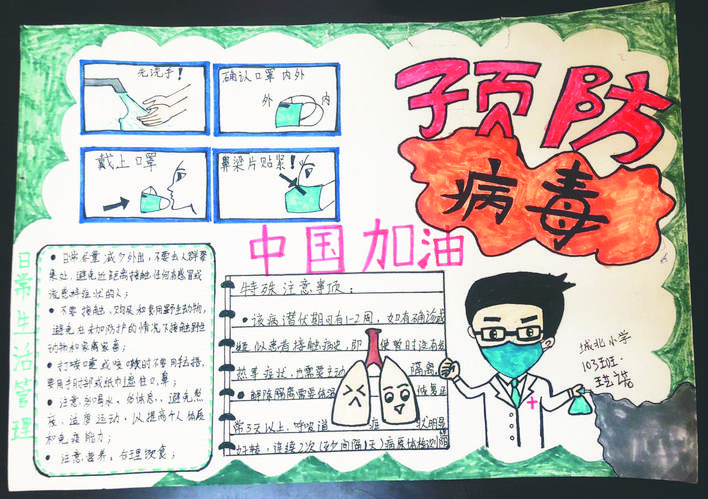 先洗手!
确认口罩内外
外 内
戴上口罩
鼻梁片贴紧!
预防
病毒
中国加油
日常生活管理
日常尽量减少外出,不要去人群聚
集处,避免近距离接触任何有感冒或
流感样症状的人;
不要接触、购买和食用野生动物,
避免在未加防护的情况下接触野生
动物和家禽家畜;
打喷嚏或咳嗽时不要用手捂,
要用手肘部或纸巾遮住口鼻;
注意多喝水、多休息、避免熬
夜、适度运动,以提高个人体质
和免疫能力;
注意营养,合理饮食;
特殊注意事项:
该病潜伏期可有1-2周,如有确诊或
疑似患者接触病史,即使暂时没有
热等症状,也需要主动 隔离。
解除隔离需要体温 恢复正
常3天以上,呼吸道 症 状明显
好转,连续2次(至少间隔1天)病原体检测阴
城北小学
103班